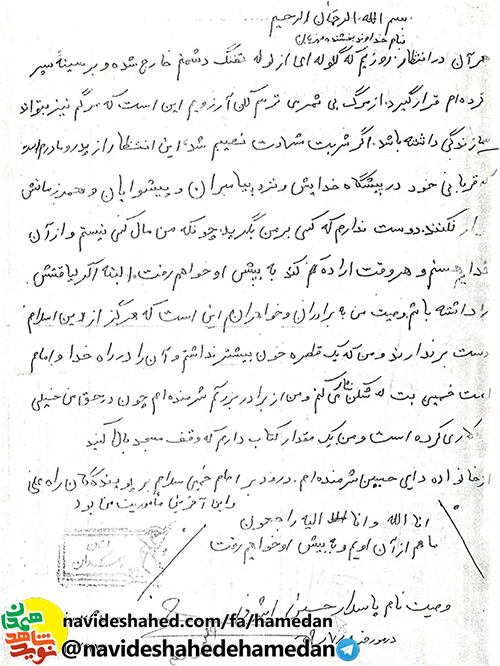 بسم الله الرحمن الرحیم
بنام خداوند بخشنده مهربان
هر آن در انتظار روزیم که گلوله ای از لوله تفنگ دشمن خارج شده و بر سینهٔ سپر
کرده ام قرار گیرد. از مرگ بی ثمری ترسم آن آرزویم این است که مرگم نیز بتواند
سازندگی داشته باشد. اگر شربت شهادت نصیبم شد، این انتظار از پدر و مادرم است
که قربانی خود در پیشگاه خدایش و نزد پیامبران و پیشوایان و همرزمانش
نکنند. دوست ندارم که کسی بر من بگرید چونکه من مال کسی نیستم و از آن
خدایم هستم و هر وقت اراده کند به پیش او خواهم رفت. البته اگر لیاقتش
را داشته باشم وصیت من به برادران و خواهران این است که هرگز از دین اسلام
دست برندارند و من که یک قطره خون بیشتر نداشتم و آن را در راه خدا و امام
امت خمینی بت شکن می کنم و من از برادر بزرگم شرمنده ام چون در حق من خیلی
کاری کرده است و من یک مقدار کتاب دارم که وقف مسجد کنید
از خانواده دایی حسین شرمنده ام. درود بر امام خمینی سلام بر پویندگان راه علی
و این آخرین مأموریت من بود
انا لله و انا الیه راجعون
ما هم از آن اویم و به پیش او خواهیم رفت
وصیت نام پاسدار حسین
navideshahed.com/fa/hamedan
@navideshahedehamedan
نوید شاهد
همدان